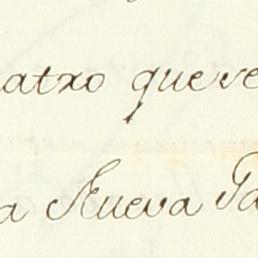 atro que ve
a Nueva Ga